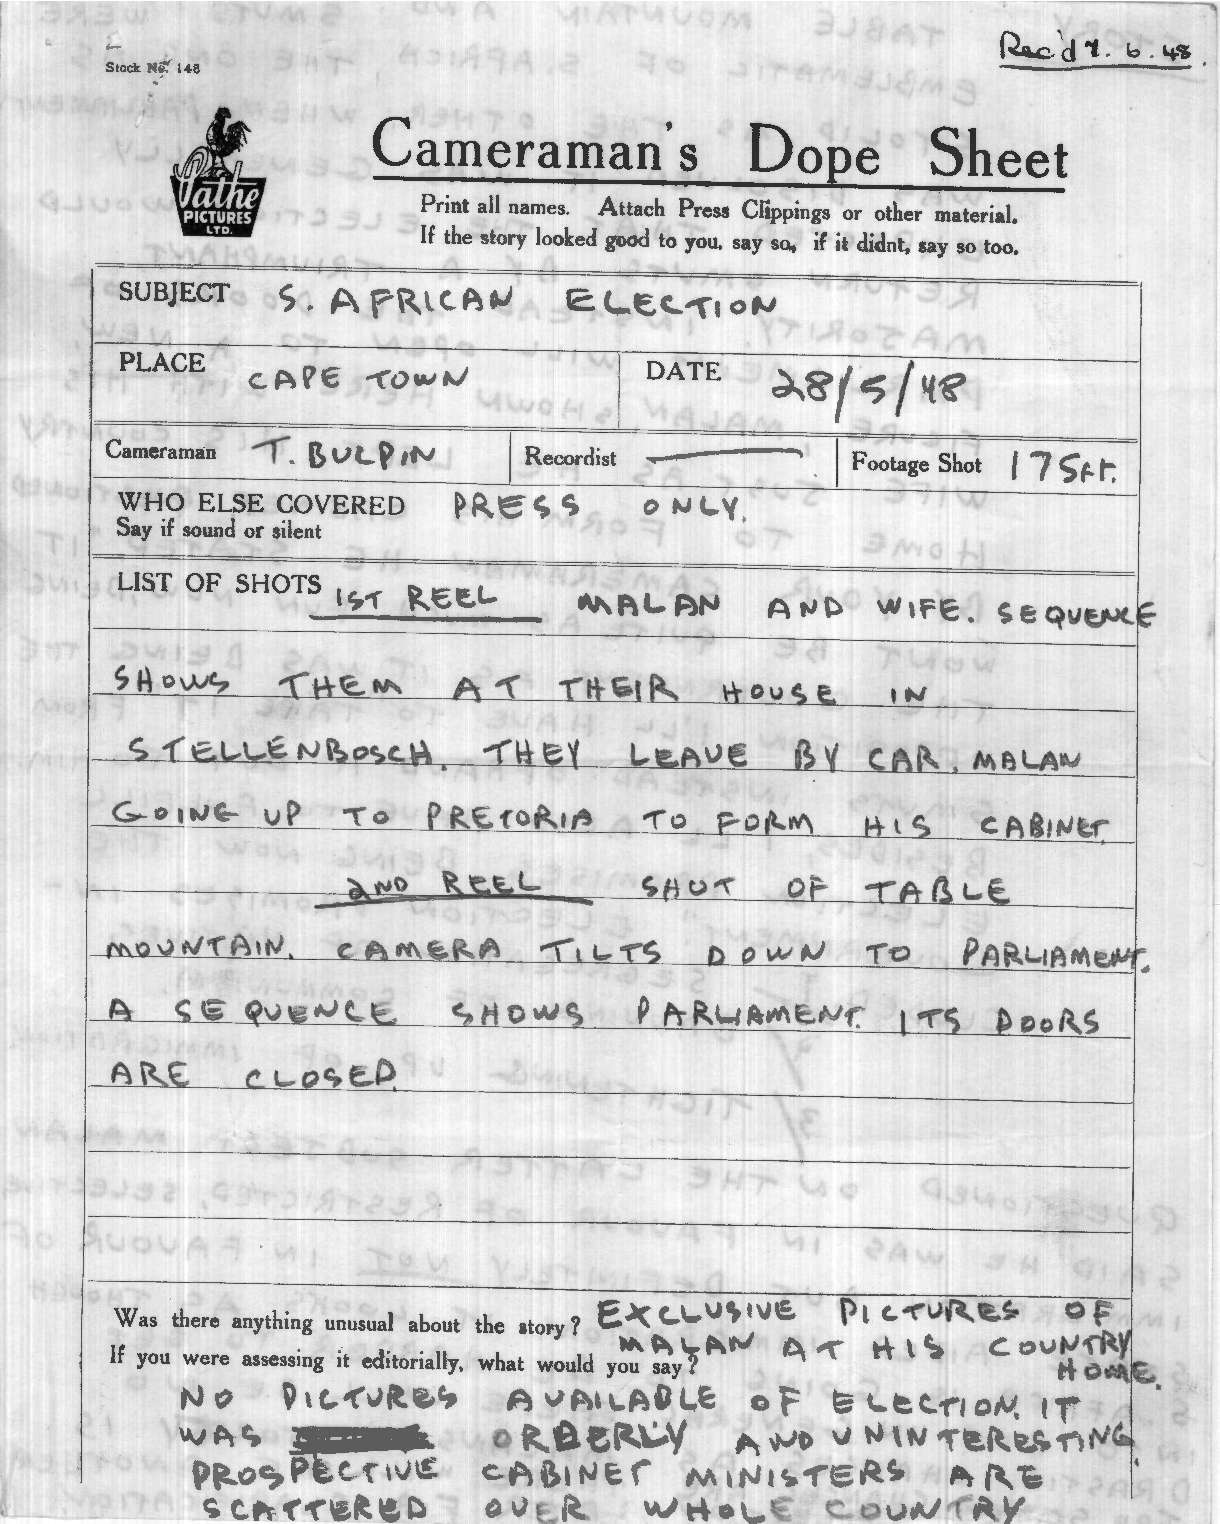 Stock No. 148
Rec'd 7. 6. 48.
Pathe
PICTURES
LTD.
Cameraman's Dope Sheet
Print all names. Attach Press Clippings or other material.
If the story looked good to you, say so, if it didnt, say so too.
SUBJECT S. AFRICAN ELECTION
PLACE CAPE TOWN DATE 28/5/48
Cameraman T. BULPIN Recordist Footage Shot 175 FT.
WHO ELSE COVERED PRESS ONLY.
Say if sound or silent
LIST OF SHOTS 1ST REEL MALAN AND WIFE. SEQUENCE
SHOWS THEM AT THEIR HOUSE IN
STELLENBOSCH. THEY LEAVE BY CAR. MALAN
GOING UP TO PRETORIA TO FORM HIS CABINET.
2ND REEL SHOT OF TABLE
MOUNTAIN. CAMERA TILTS DOWN TO PARLIAMENT.
A SEQUENCE SHOWS PARLIAMENT. ITS DOORS
ARE CLOSED.
Was there anything unusual about the story? EXCLUSIVE PICTURES OF
MALAN AT HIS COUNTRY
If you were assessing it editorially, what would you say? HOME.
NO PICTURES AVAILABLE OF ELECTION. IT
WAS ORDERLY AND UNINTERESTING.
PROSPECTIVE CABINET MINISTERS ARE
SCATTERED OVER WHOLE COUNTRY